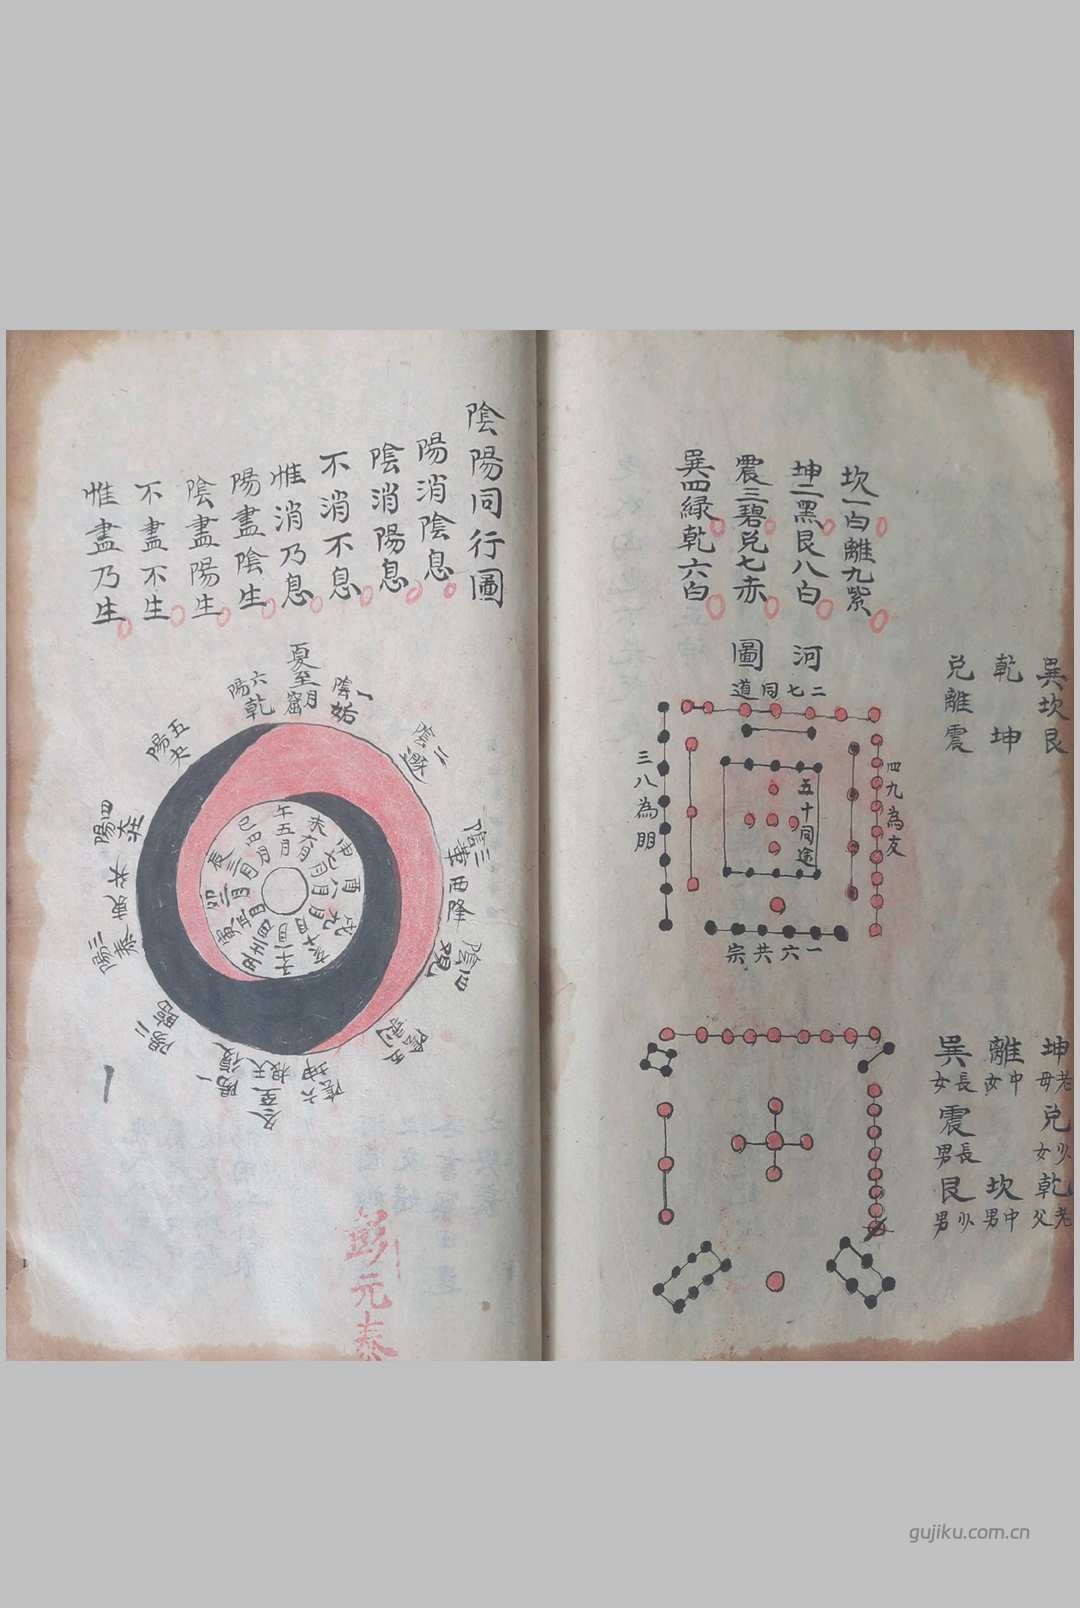 坎一白離九紫
坤二黑艮八白
震三碧兌七赤
巽四綠乾六白
河圖
二七同道
三八為朋
四九為友
五十同途
一六共宗
巽坎艮
乾坤
兌離震
坤老母兌少女乾老父
離中女坎中男
巽長女震長男艮少男
陰陽同行圖
陽消陰息
陰消陽息
不消不息
惟消乃息
陽盡陰生
陰盡陽生
不盡不生
惟盡乃生
夏至月窟
陰一姤
陰二遯
陰三
西降
陰四觀
陰五
陰六坤
天根
冬至
陽一復
陽二臨
陽三泰
東
陽四
陽五夬
陽六乾
午五月
未六月
申七月
酉八月
戌九月
亥十月
子十一月
丑十二月
寅正月
卯二月
辰三月
巳四月
彭元泰
gujiku.com.cn